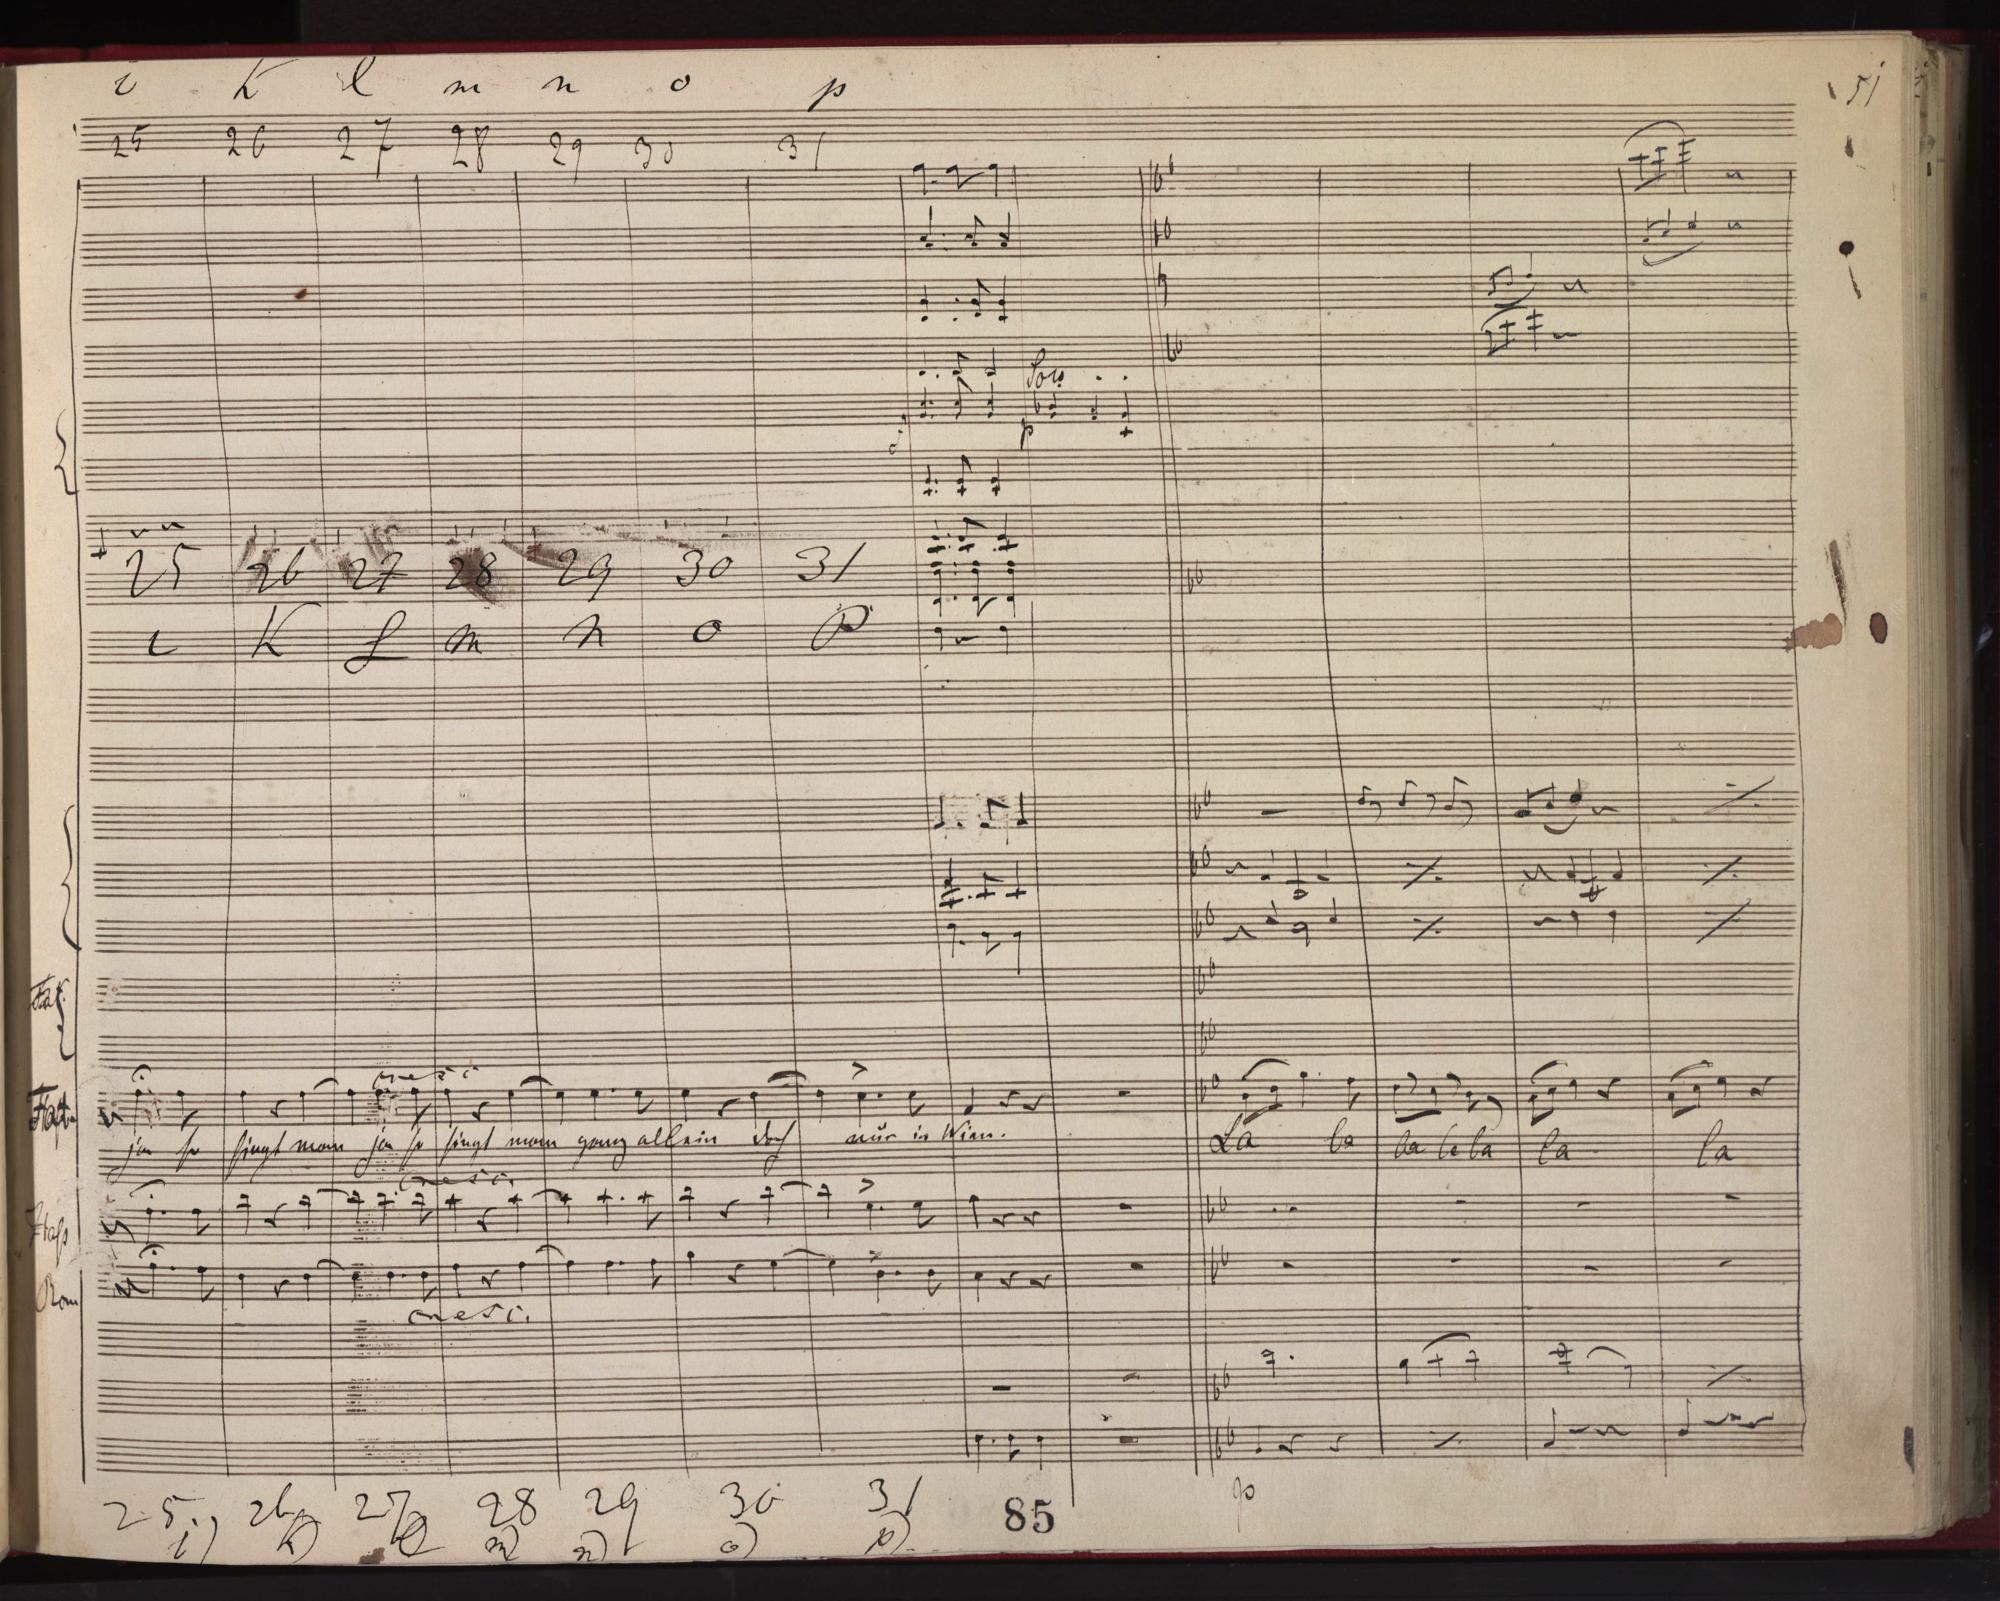 i K l m n o p
51
25 26 27 28 29 30 31
Solo
p
25 26 27 28 29 30 31
i K L m n o P
cresc:
ja so singt man ja so singt man ganz allein doch nur in Wien.
La la la la la la la
cresc:
cresc:
p
25 26 27 28 29 30 31
i) k) l) m) n) o) p)
85